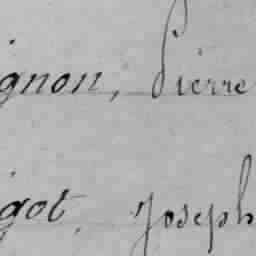 ignon, Pierre
igot, Joseph